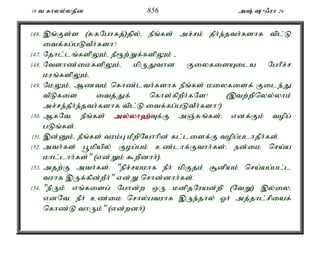 19 வ காலல்லதீன 856 அஷ் ஷுஃரா 26
146. இங்குள்ள (சுகபோகத்)தில், நீங்கள் அச்சம் தீர்ந்தவர்களாக விட்டு
வைக்கப்படுவீர்களா?
147. தோட்டங்களிலும், நீரூற்றுக்களிலும் -
148. வேளாண்மைகளிலும், மிருதுவான குலைகளையுடைய பேரீச்ச
மரங்களிலும்,
149. மேலும், ஆணவம் கொண்டவர்களாக நீங்கள் மலைகளைக் குடைந்து
வீடுகளை வைத்துக் கொள்கிறீர்களே! (இவற்றிலெல்லாம்
அச்சந்தீர்ந்தவர்களாக விட்டு வைக்கப்படுவீர்களா?)
150. ஆகவே, நீங்கள் அல்லாஹ்வுக்கு அஞ்சுங்கள்; எனக்கும் வழிப்
படுங்கள்.
151. இன்னும், நீங்கள் வரம்பு மீறியோரின் கட்டளைக்கு வழிப்படாதீர்கள்.
152. அவர்கள் பூமியில் குழப்பம் உண்டாக்குவார்கள்; நன்மை செய்ய
மாட்டார்கள்" (என்றும் கூறினார்).
153. அதற்கு அவர்கள்: "நிச்சயமாக நீர் மிகுதம் சூனியம் செய்யப்பட்ட
வராக இருக்கின்றீர்" என்று சொன்னார்கள்.
154. "நீரும் எங்களைப் போன்ற ஒரு மனிதரேயன்றி (வேறு) இல்லை;
எனவே, நீர் உண்மை சொல்பவராக இருந்தால் ஓர் அத்தாட்சியைக்
கொண்டு வாரும்" (என்றனர்).